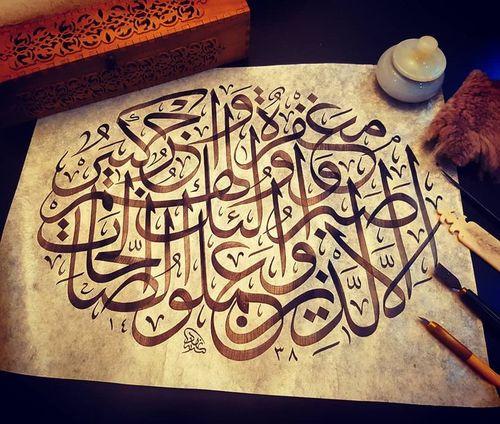 إلا الذين صبروا وعملوا الصالحات
أولئك لهم
مغفرة وأجر كبير
١٤ ٣٨